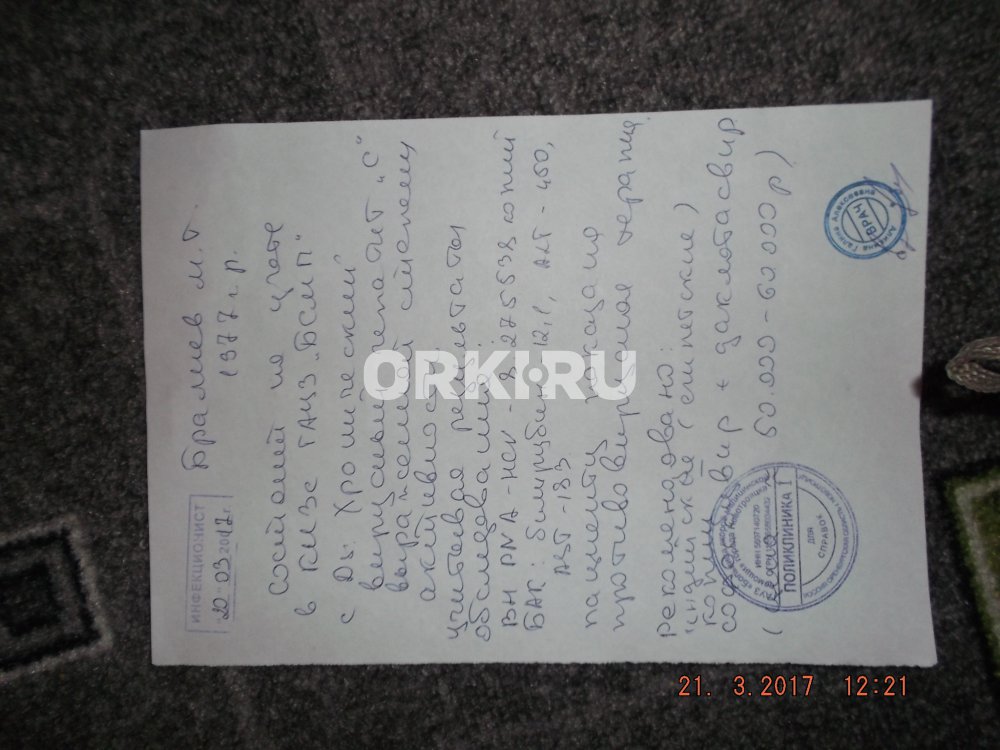 ИНФЕКЦИОНИСТ
"20" 03 2017 г.
Брамиев М.Т.
1977 г.р.
состоит на учете
в КИЗе ГАУЗ "БСМП"
с Ds: Хронический
вирусный гепатит "С"
выраженной степени
активности.
Учитывая результаты
обследования:
ВН РНА-HCV - 8 275538 копий
БАК: билирубин - 12,1, АЛТ - 450,
АСТ - 183
пациенту показана
противовирусная терапия.
Рекомендовано:
индийские (египетские)
софосбувир + даклатасвир
(50.000 - 60 000 р)
ПОЛИКЛИНИКА 1
ДЛЯ
СПРАВОК
ВРАЧ
Галина Алексеевна
ORKI.RU
21. 3.2017 12:21